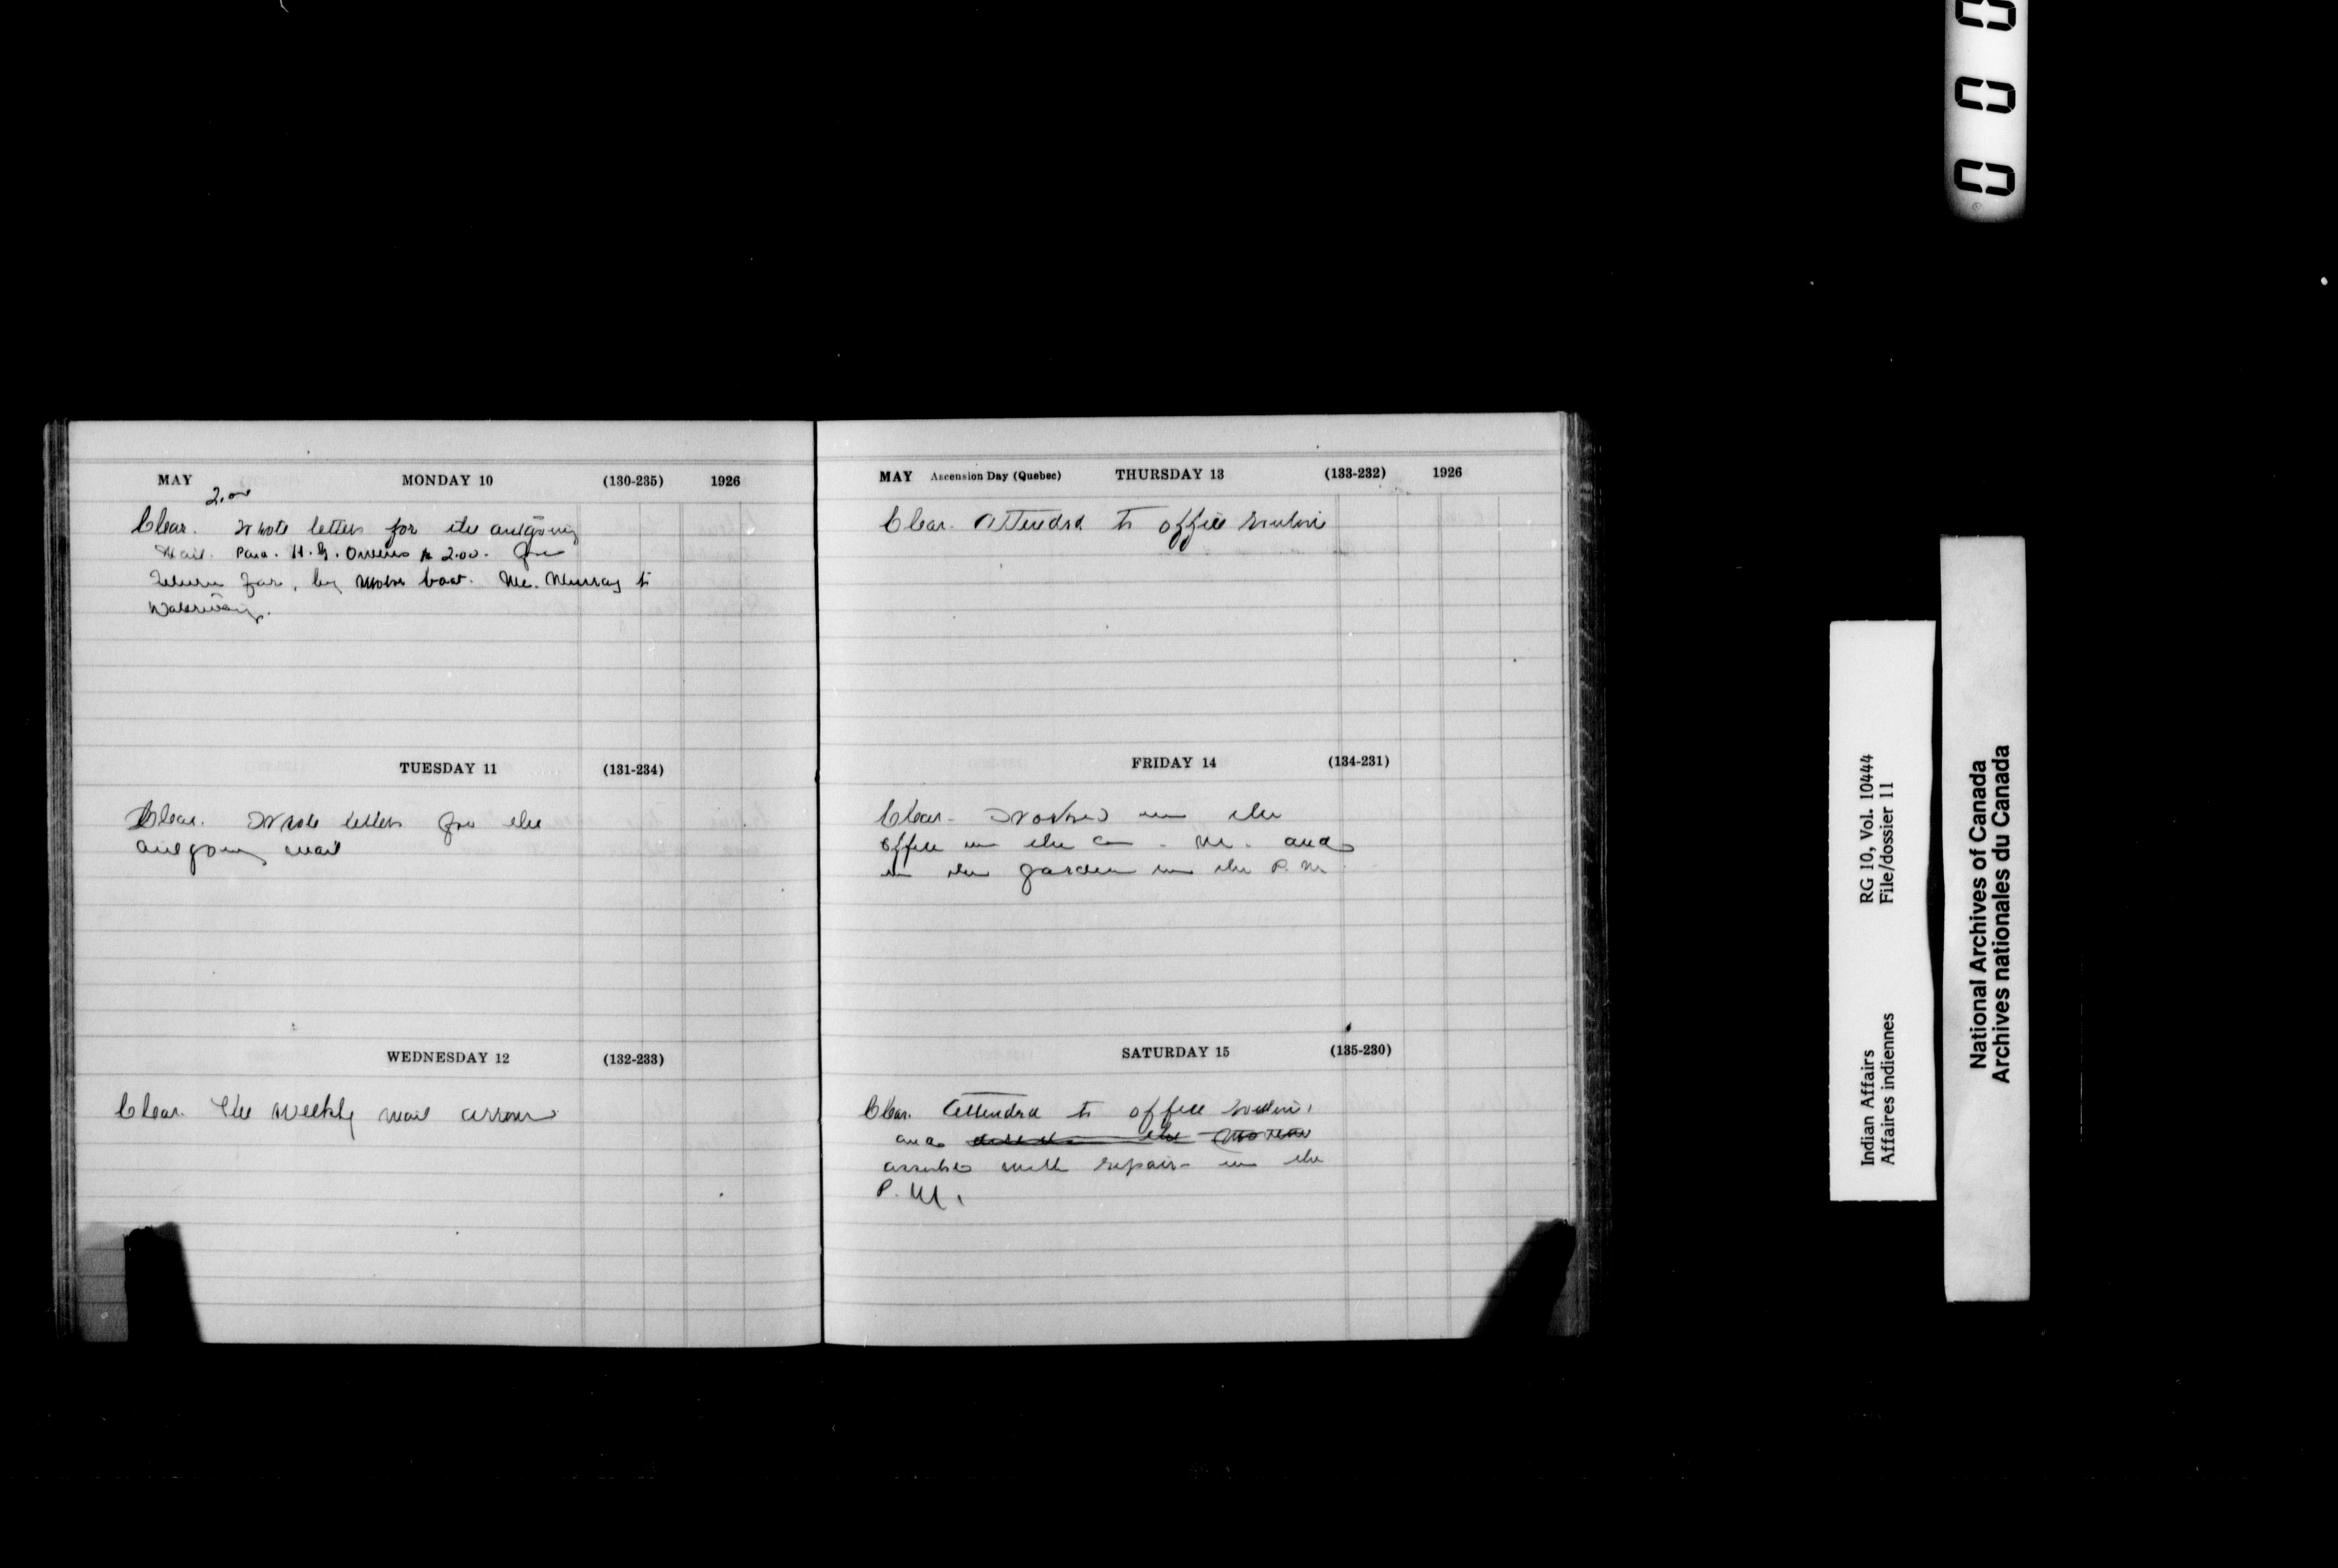 MAY MONDAY 10 (130-235) 1926
2.00
Clear. Wrote letters for the outgoing
Mail. Paid. H. G. Owens $ 2.00. for
return fare, by motor boat. Mc. Murray to
Waterways.
TUESDAY 11 (131-234)
Clear. Wrote letters for the
outgoing mail
WEDNESDAY 12 (132-233)
Clear. The weekly mail arrived
MAY Ascension Day (Quebec) THURSDAY 13 (133-232) 1926
Clear. Attended to office routine
FRIDAY 14 (134-231)
Clear. Worked in the
office in the a. m. and
in the garden in the P. M.
SATURDAY 15 (135-230)
Clear. Attended to office routine
and the
assisted with repairs in the
P. M.
0 0 0
Indian Affairs RG 10, Vol. 10444
Affaires indiennes File/dossier 11
National Archives of Canada
Archives nationales du Canada